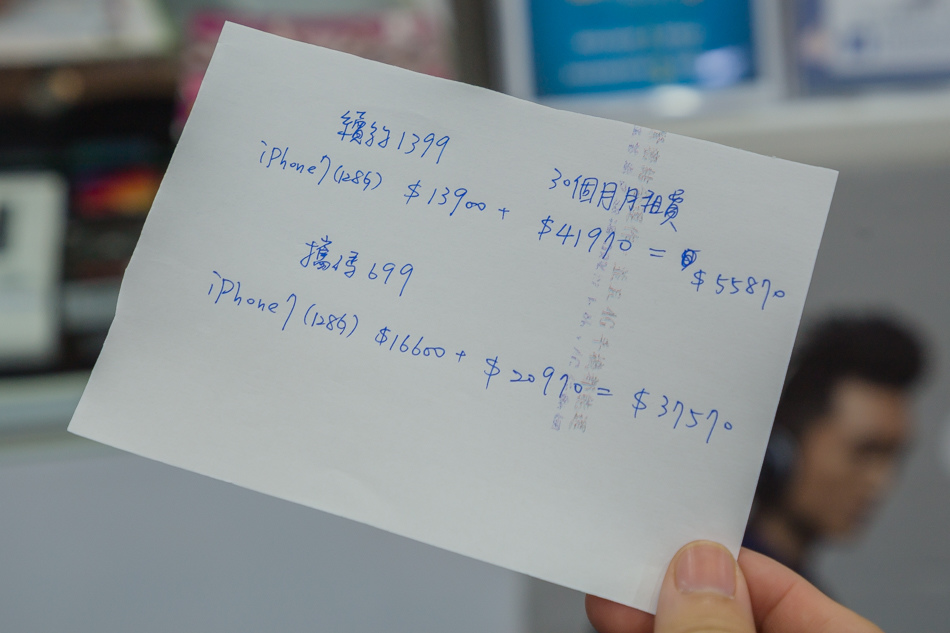 續約1399
iPhone7(128G) $13900 + $41970 = $55870
30個月月租費
攜碼699
iPhone7(128G) $16600 + $20970 = $37570